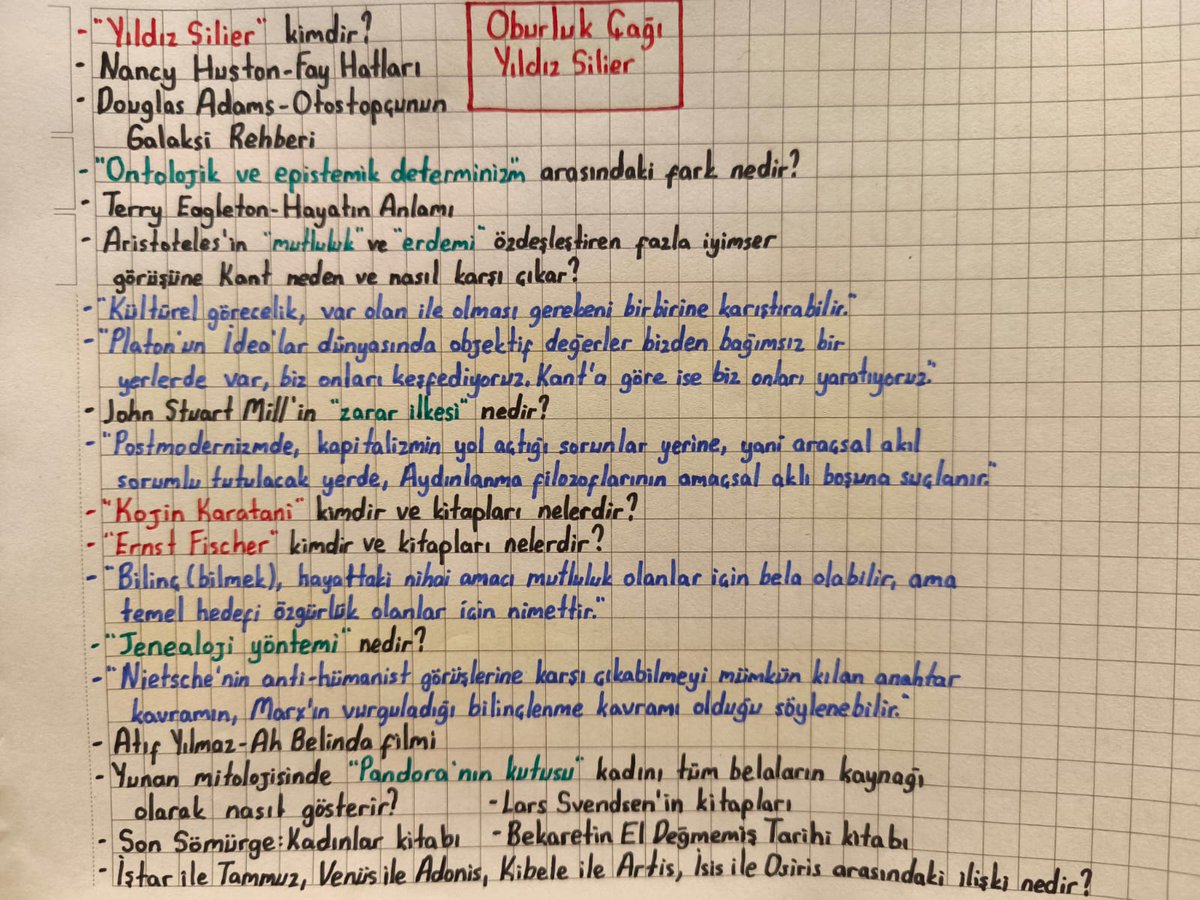 - "Yıldız Silier" kimdir?
Oburluk Çağı
Yıldız Silier
- Nancy Huston-Fay Hatları
- Douglas Adams-Otostopçunun
Galaksi Rehberi
- "Ontolojik ve epistemik determinizm" arasındaki fark nedir?
- Terry Eagleton-Hayatın Anlamı
- Aristoteles'in "mutluluk" ve "erdemi" özdeşleştiren fazla iyimser
görüşüne Kant neden ve nasıl karşı çıkar?
- "Kültürel görecelik, var olan ile olması gerekeni birbirine karıştırabilir."
- "Platon'un İdea'lar dünyasında objektif değerler bizden bağımsız bir
yerlerde var, biz onları keşfediyoruz. Kant'a göre ise biz onları yaratıyoruz."
- John Stuart Mill'in "zarar ilkesi" nedir?
- "Postmodernizmde, kapitalizmin yol açtığı sorunlar yerine, yani araçsal akıl
sorumlu tutulacak yerde, Aydınlanma filozoflarının amaçsal aklı boşuna suçlanır."
- "Kojin Karatani" kimdir ve kitapları nelerdir?
- "Ernst Fischer" kimdir ve kitapları nelerdir?
- "Bilinç (bilmek), hayattaki nihai amacı mutluluk olanlar için bela olabilir, ama
temel hedefi özgürlük olanlar için nimettir."
- "Jenealoji yöntemi" nedir?
- "Nietsche'nin anti-hümanist görüşlerine karşı çıkabilmeyi mümkün kılan anahtar
kavramın, Marx'ın vurguladığı bilinçlenme kavramı olduğu söylenebilir."
- Atıf Yılmaz-Ah Belinda filmi
- Yunan mitolojisinde "Pandora'nın kutusu" kadını tüm belaların kaynağı
olarak nasıl gösterir?
- Lars Svendsen'in kitapları
- Son Sömürge: Kadınlar kitabı
- Bekaretin El Değmemiş Tarihi kitabı
- İştar ile Tammuz, Venüs ile Adonis, Kibele ile Artis, İsis ile Osiris arasındaki ilişki nedir?